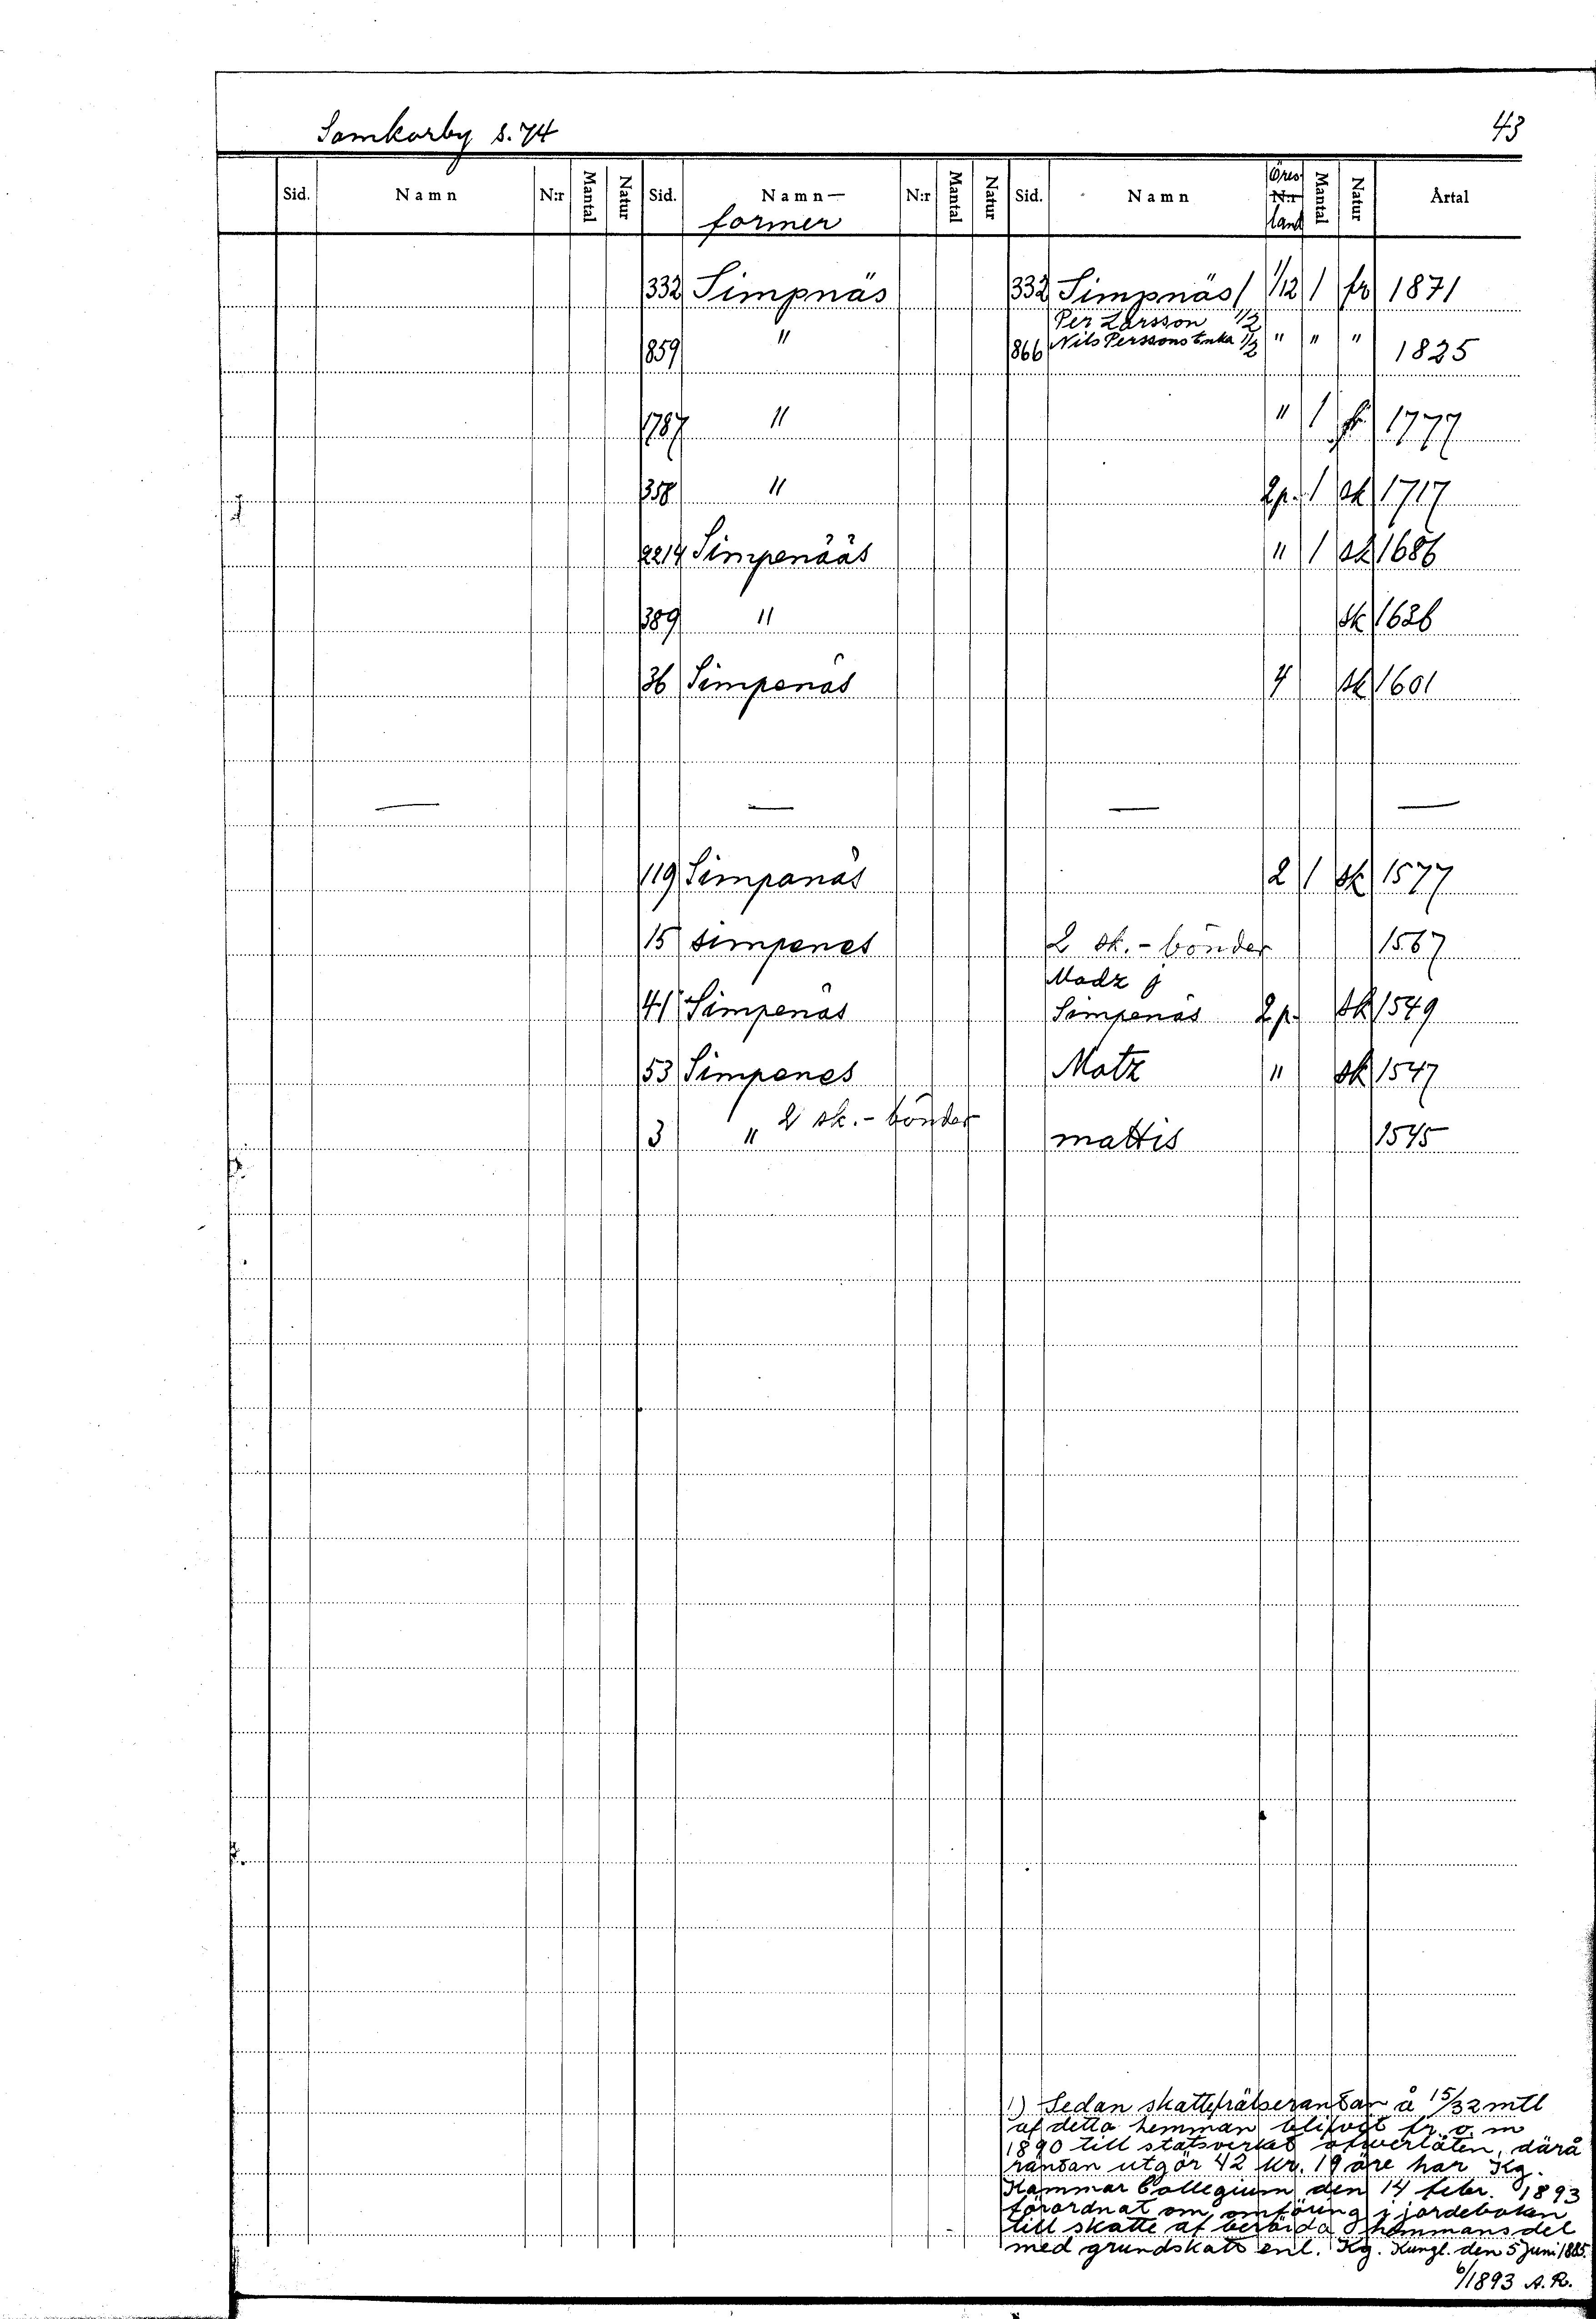 Samkarby s. 74
43
Sid. Namn N:r Mantal Natur Sid. Namn— N:r Mantal Natur Sid. Namn Öres N:r Mantal Natur Årtal
former land
332 Simpnäs 332 Simpnäs 1/12 1 fr 1871
Per Larsson 1/2
1859 " 866 Nils Perssons Enka 1/2 " " " 1825
1787 " " 1 fr 1777
358 " 2p. 1 sk 1717
2214 Simpenääs " 1 sk 1686
389 " sk 1636
36 Simpenäs 4 sk 1601
— — — —
119 Simpanäs 2 1 sk 1577
15 simpenes 2 sk.-bönder 1567
Madz j
41 Simpenäs Simpenäs 2p. sk 1549
53 Simpenes Matz " sk 1547
3 " 2 sk.-bönder mattis 1545
1) Sedan skattefrälseräntan å 15/32 mtl
af detta hemman blifvit fr. o. m
1890 till statsverket afverlåten, därå
räntan utgör 42 kr. 19 öre har Kg.
Kammar Collegium den 14 febr. 1893
förordnat om omföring i jordeboken
till skatte af berörda hemmansdel
med grundskatt enl. Kg. Kungl. den 5 Juni 1885.
6/1893 A.R.